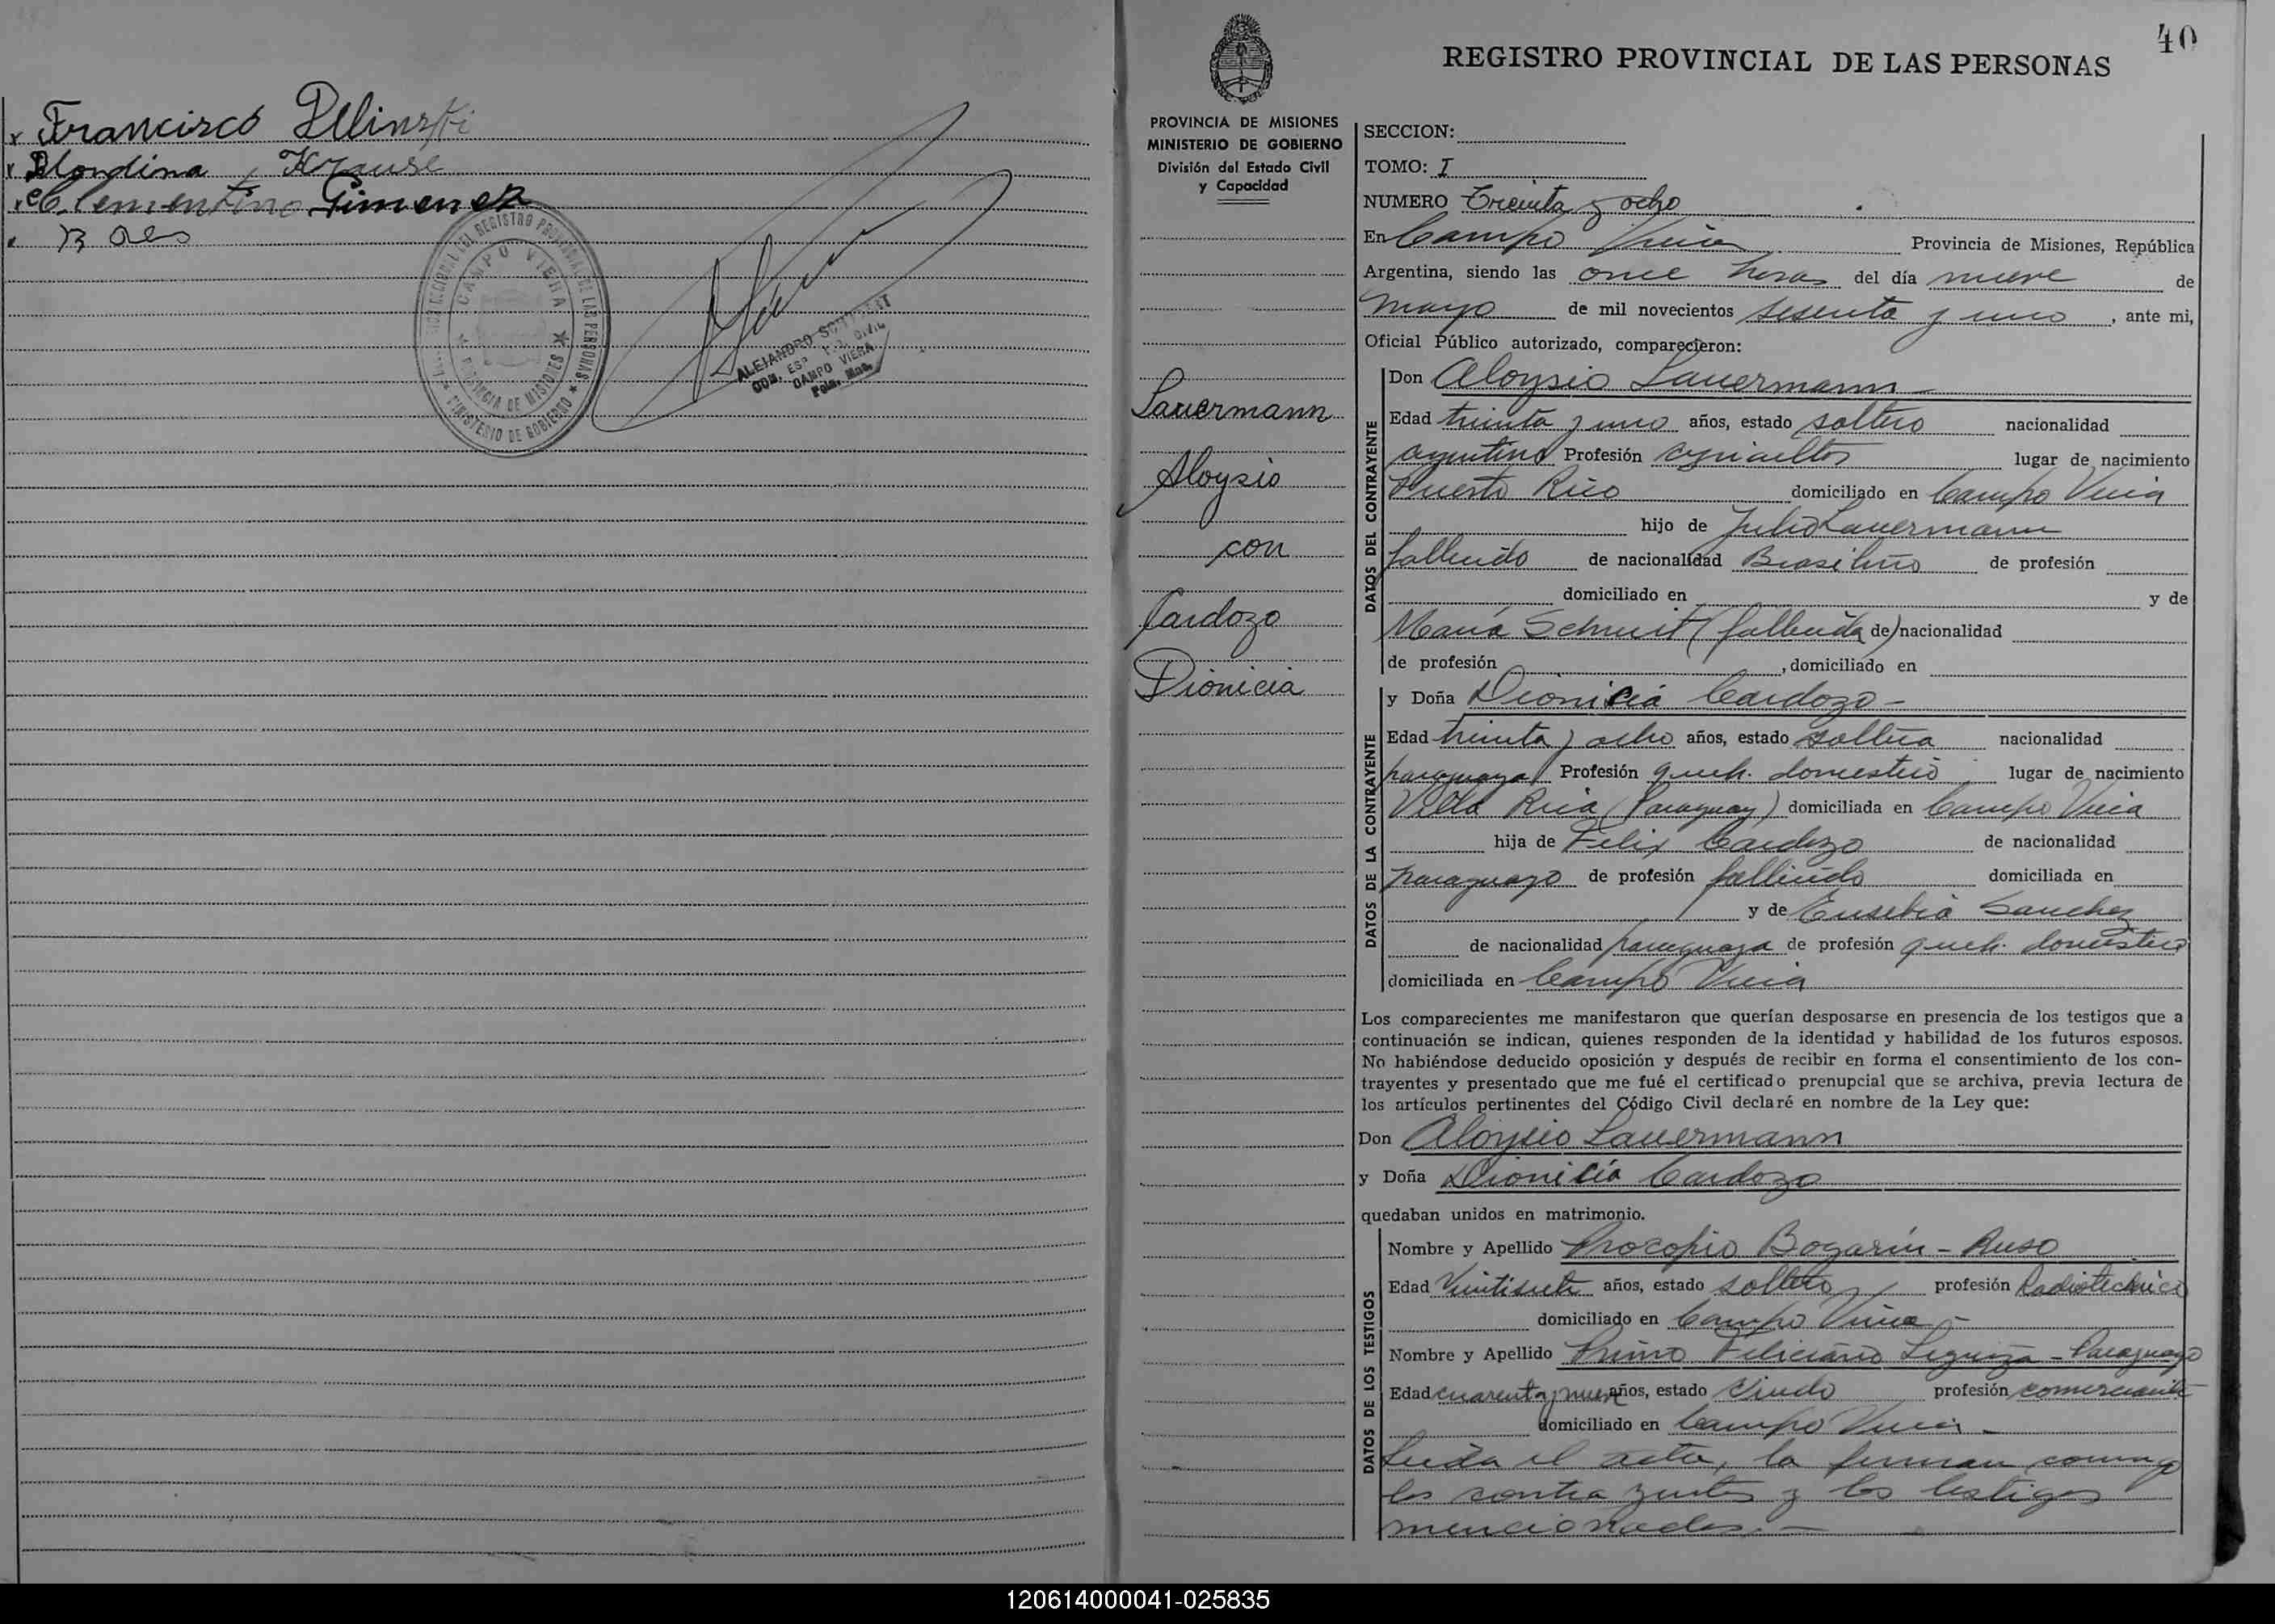 x Francisco Pelinski
x Blondina Krause
x Clementino Gimenez
CAMPO VIERA
PROVINCIA DE MISIONES
MINISTERIO DE GOBIERNO
ALEJANDRO
CAMPO VIERA
40
REGISTRO PROVINCIAL DE LAS PERSONAS
PROVINCIA DE MISIONES
MINISTERIO DE GOBIERNO
División del Estado Civil
y Capacidad
Sauermann
Aloysio
con
Cardozo
Dionicia
SECCION:
TOMO: I
NUMERO Treinta y ocho
En Campo Viera Provincia de Misiones, República
Argentina, siendo las once horas del día nueve de
mayo de mil novecientos sesenta y uno, ante mi,
Oficial Público autorizado, comparecieron:
DATOS DEL CONTRAYENTE
Don Aloysio Sauermann
Edad treinta y uno años, estado soltero nacionalidad
argentino Profesión agricultor lugar de nacimiento
Puerto Rico domiciliado en Campo Viera
hijo de Julio Sauermann
fallecido de nacionalidad Brasileño de profesión
domiciliado en y de
María Schmit (fallecida) de nacionalidad
de profesión , domiciliado en
DATOS DE LA CONTRAYENTE
y Doña Dionicia Cardozo -
Edad treinta y ocho años, estado soltera nacionalidad
paraguaya Profesión queh. domestico lugar de nacimiento
Villa Rica (Paraguay) domiciliada en Campo Viera
hija de Felix Cardozo de nacionalidad
paraguayo de profesión fallecido domiciliada en
y de Eusebia Sanchez
de nacionalidad paraguaya de profesión queh. domestico
domiciliada en Campo Viera
Los comparecientes me manifestaron que querían desposarse en presencia de los testigos que a
continuación se indican, quienes responden de la identidad y habilidad de los futuros esposos.
No habiéndose deducido oposición y después de recibir en forma el consentimiento de los con-
trayentes y presentado que me fué el certificado prenupcial que se archiva, previa lectura de
los artículos pertinentes del Código Civil declaré en nombre de la Ley que:
Don Aloysio Sauermann
y Doña Dionicia Cardozo
quedaban unidos en matrimonio.
DATOS DE LOS TESTIGOS
Nombre y Apellido Procopio Bogarin - Ruso
Edad Veintisiete años, estado soltero profesión Radiotecnico
domiciliado en Campo Viera -
Nombre y Apellido Primo Feliciano - Paraguayo
Edad cuarenta y nueve años, estado Viudo profesión comerciante
domiciliado en Campo Viera -
Leida el acta, la firman conmigo
los contrayentes y los testigos
mencionados. -
120614000041-025835